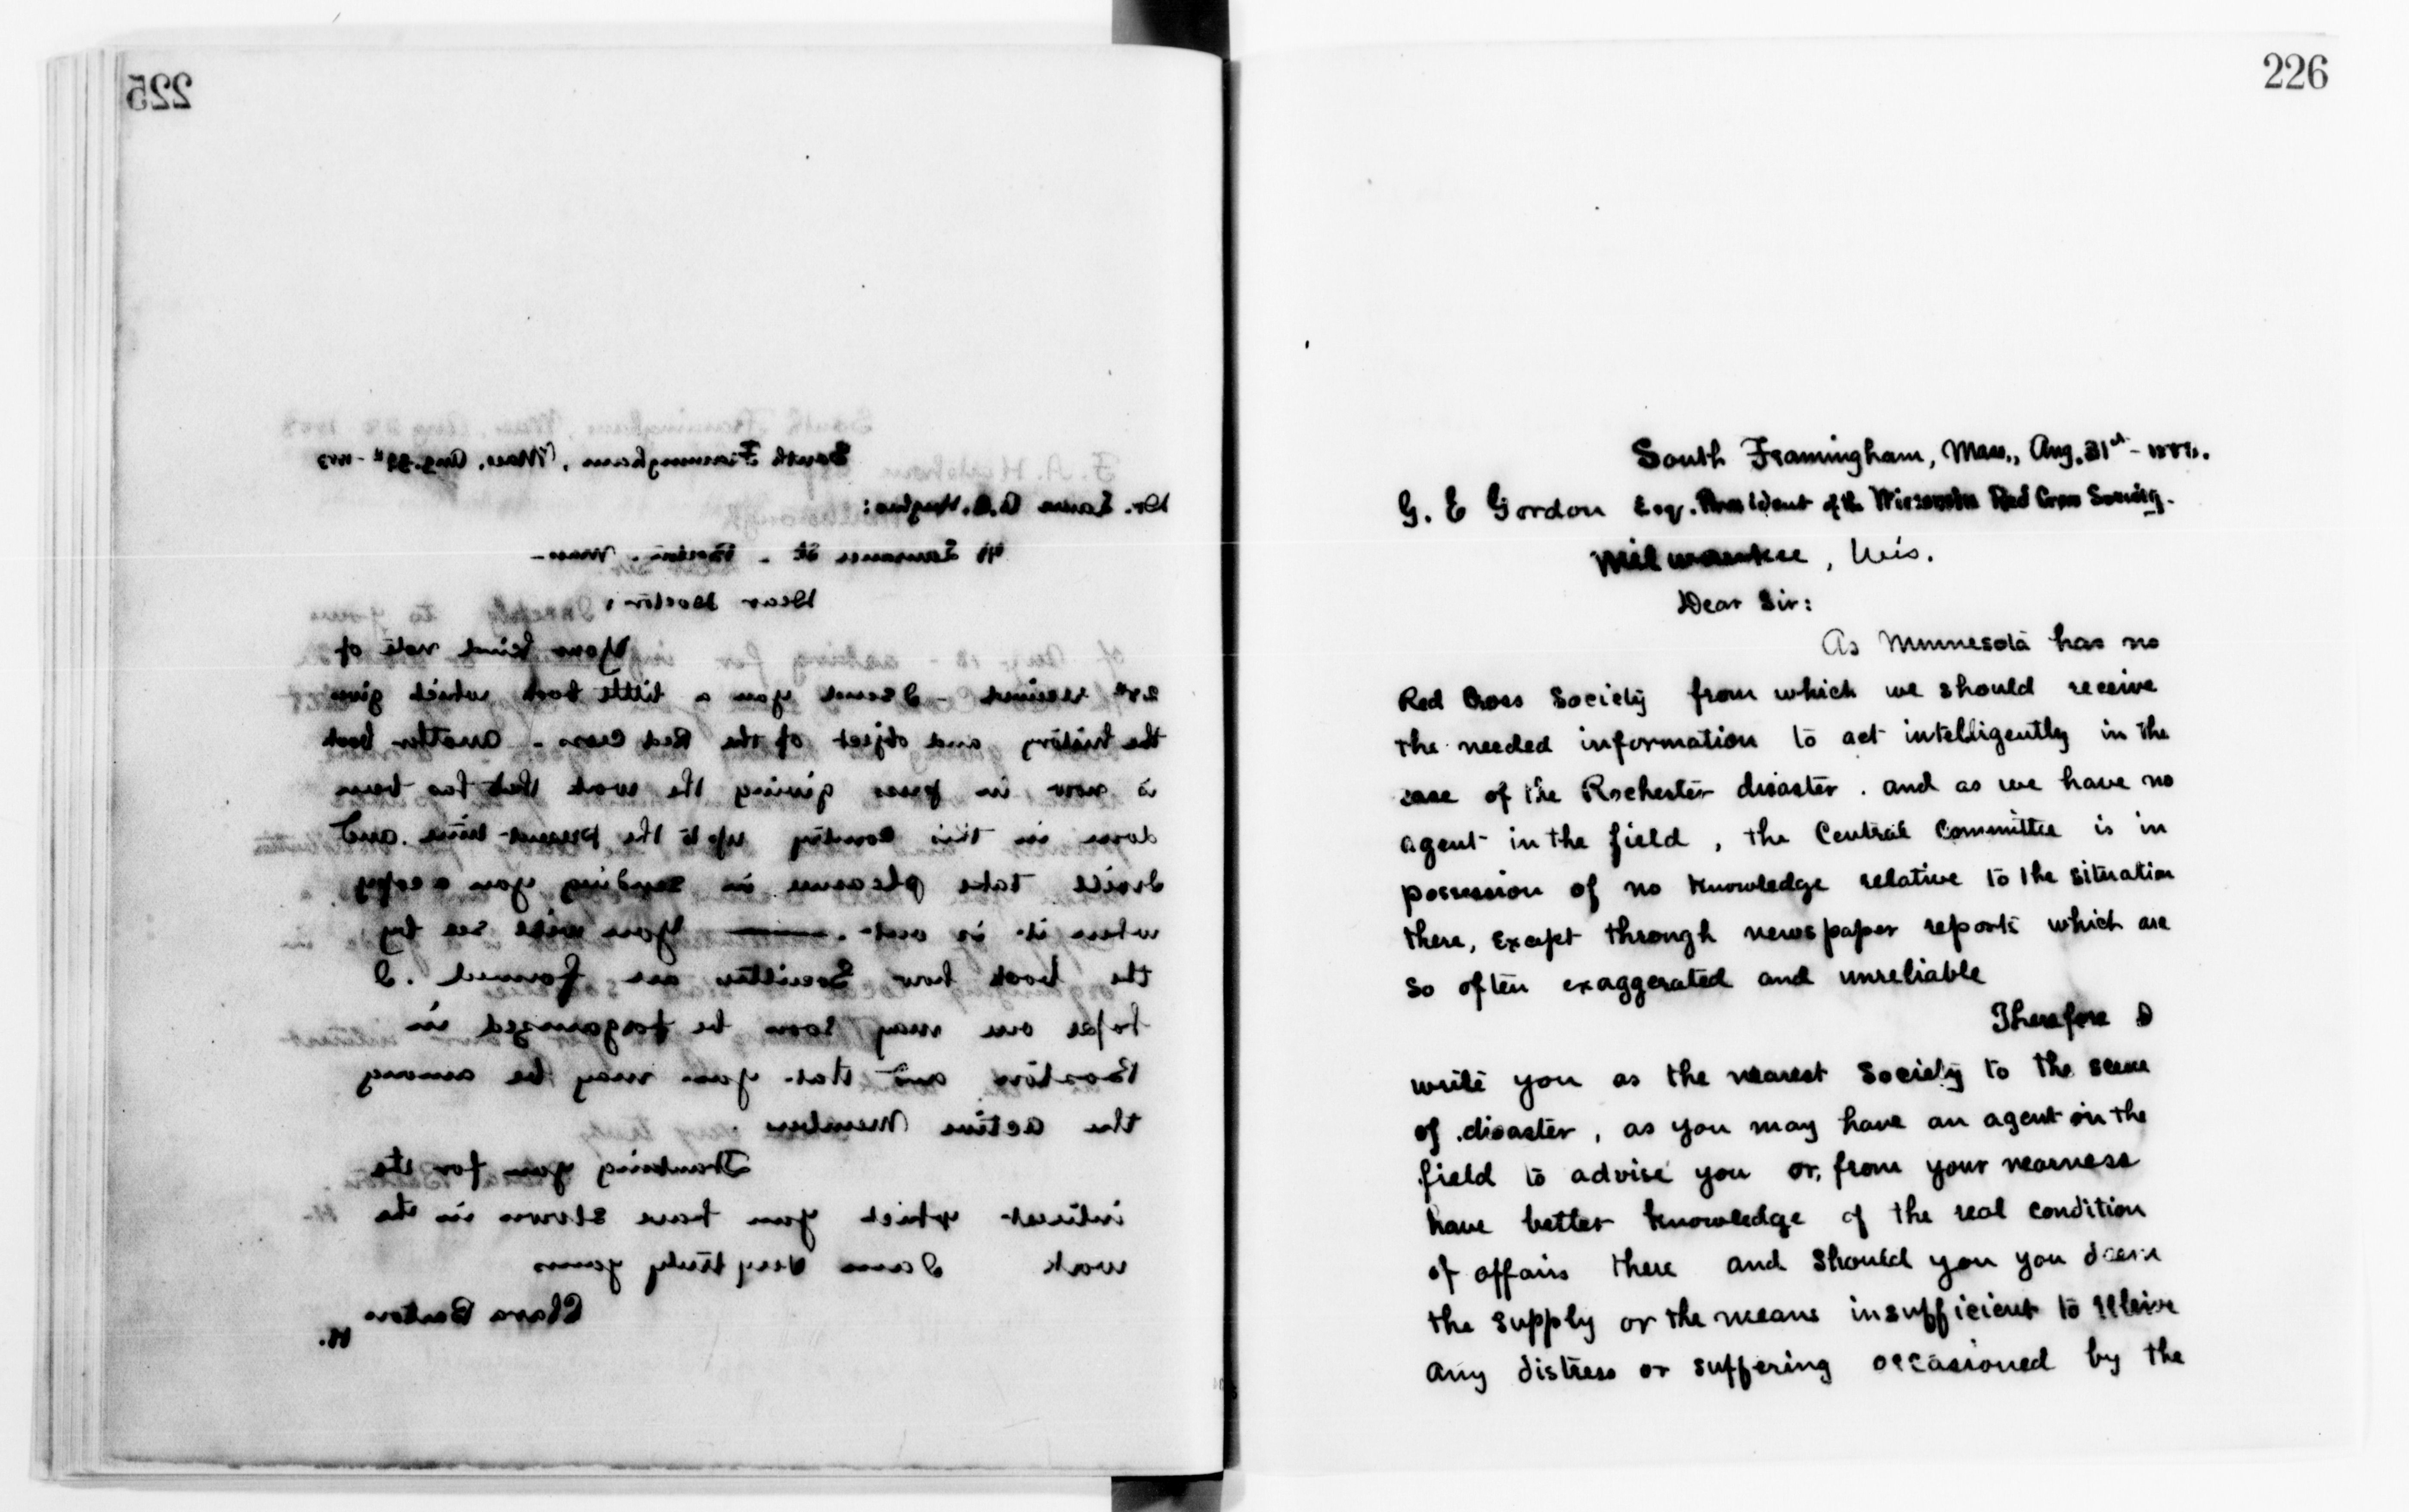 225
South Framingham, Mass. Aug.
Dr. Laura Hughes:
Lawrence St. - Boston. Mass -
Dear Doctor:
Your kind note of
28th received - I send you a little book which gives
the history and object of the Red Cross - Another book
is now in press giving the work that has been
done in this country up to the present time. and
I will take pleasure in sending you a copy
when it is out. —— You will see by
the book how Societies are formed. I
hope one may soon be organized in
Boston and that you may be among
the active Members.
Thanking you for the
interest which you have shown in the
work I am very truly yours
Clara Barton
H.
226
South Framingham, Mass., Aug. 31st -
G. E Gordon Esq. President of the Wisconsin Red Cross Society.
Milwaukee, Wis.
Dear Sir:
As Minnesota has no
Red Cross Society from which we should receive
the needed information to act intelligently in the
case of the Rochester disaster. and as we have no
agent in the field, the Central Committee is in
possession of no knowledge relative to the situation
there, except through newspaper reports which are
so often exaggerated and unreliable
Therefore I
write you as the nearest Society to the scene
of disaster, as you may have an agent on the
field to advise you or, from your nearness
have better knowledge of the real condition
of affairs there and should you you deem
the supply or the means insufficient to releive
any distress or suffering occasioned by the